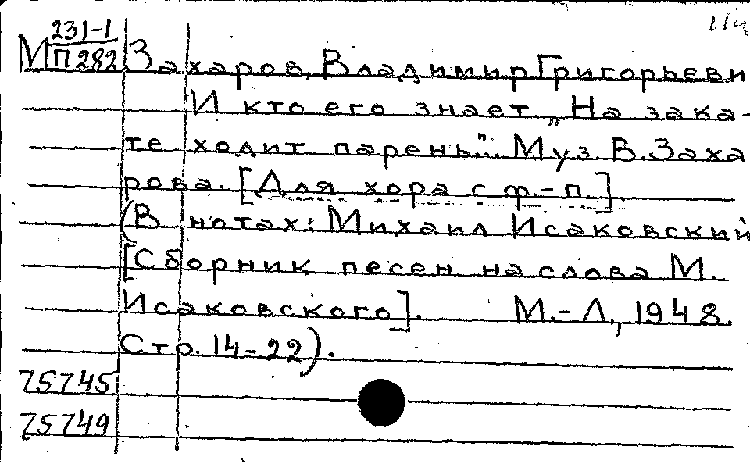 231-1
М П282 Захаров, Владимир Григорьеви
И кто его знает „На зака-
те ходит парень". Муз. В. Заха
рова. [Для хора с ф.-п.]
(В нотах: Михаил Исаковский
[Сборник песен на слова М.
Исаковского]. М.-Л., 1948.
Стр. 14-22).
75745
75749